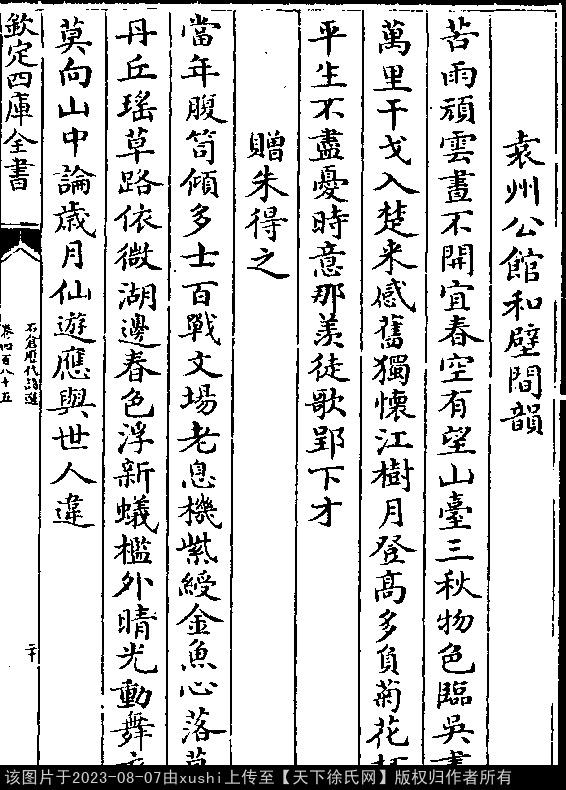 袁州公館和壁間韻
苦雨頑雲晝不開宜春空有望山臺三秋物色臨吳
萬里干戈入楚来感舊獨懷江樹月登高多負菊花
平生不盡憂時意那羨徒歌郢下才
贈朱得之
當年腹笥傾多士百戰文場老息機紫綬金魚心落
丹丘瑤草路依微湖邊春色浮新蟻檻外晴光動舞
莫向山中論歲月仙遊應與世人違
欽定四庫全書
石倉歷代詩選
卷四百八十五
二十
该图片于2023-08-07由xushi上传至【天下徐氏网】版权归作者所有